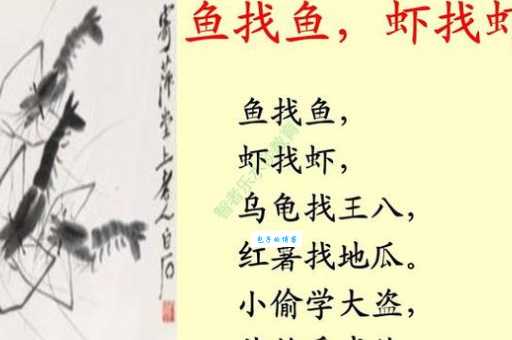 鱼找鱼，虾找虾
鱼找鱼，
虾找虾，
乌龟找王八，
红薯找地瓜。
小偷学大盗，
寄萍堂上老人白石